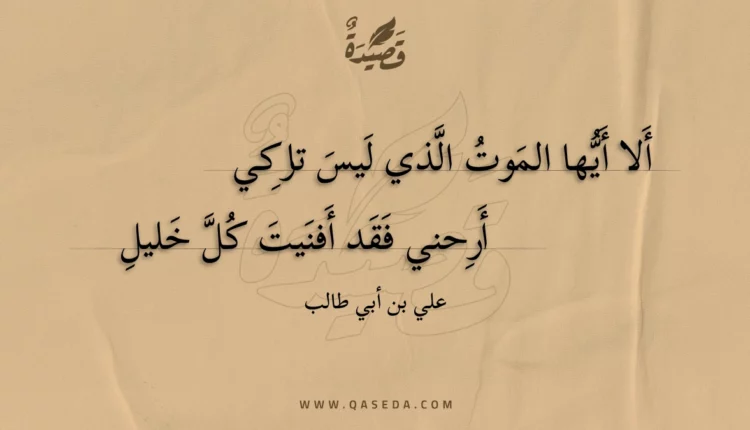 قَصِيدَةٌ
أَلا أَيُّها المَوتُ الَّذي لَيسَ تارِكي
أَرِحني فَقَد أَفنَيتَ كُلَّ خَليلِ
علي بن أبي طالب
WWW.QASEDA.COM